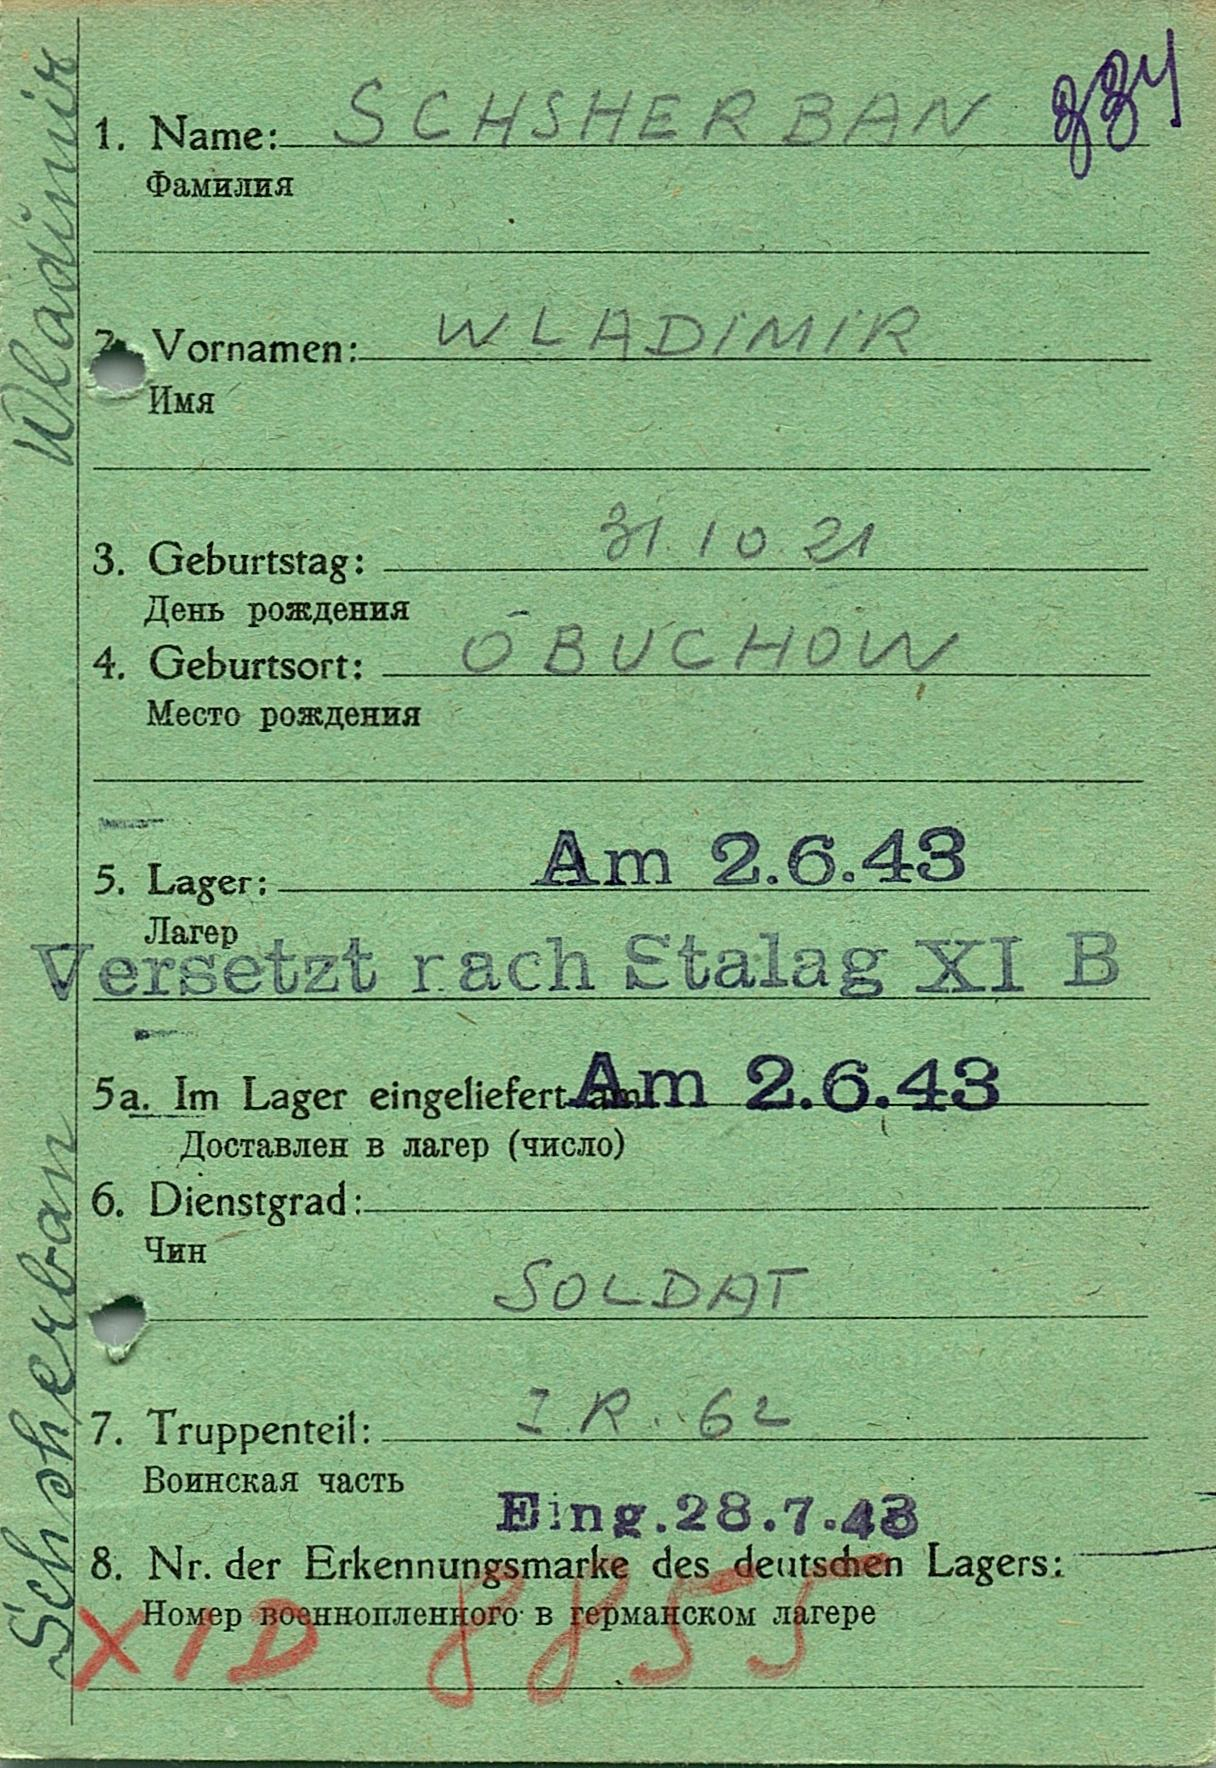 Wladimir
Schsherban
884
1. Name: SCHSHERBAN
Фамилия
2. Vornamen: WLADIMIR
Имя
3. Geburtstag: 31.10.21
День рождения
4. Geburtsort: OBUCHOW
Место рождения
Am 2.6.43
5. Lager:
Лагер
Versetzt nach Stalag XI B
Am 2.6.43
5a. Im Lager eingeliefert am
Доставлен в лагер (число)
6. Dienstgrad:
Чин
SOLDAT
7. Truppenteil: I.R. 62
Воинская часть
Eing.28.7.43
8. Nr. der Erkennungsmarke des deutschen Lagers:
Номер военнопленного в германском лагере
XID 8855